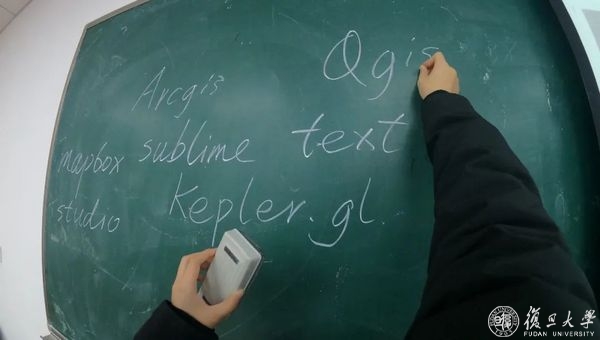 Qgis
Arcgis
sublime text
mapbox
studio
Kepler.gl
復旦大學
FUDAN UNIVERSITY